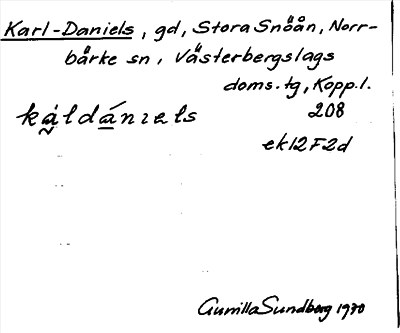 Karl-Daniels, gd, Stora Snöån, Norr-
bärke sn, Västerbergslags
doms.tg, Kopp.l.
kạ́ldánɪels 208
ek12F2d
Gunilla Sundberg 1970